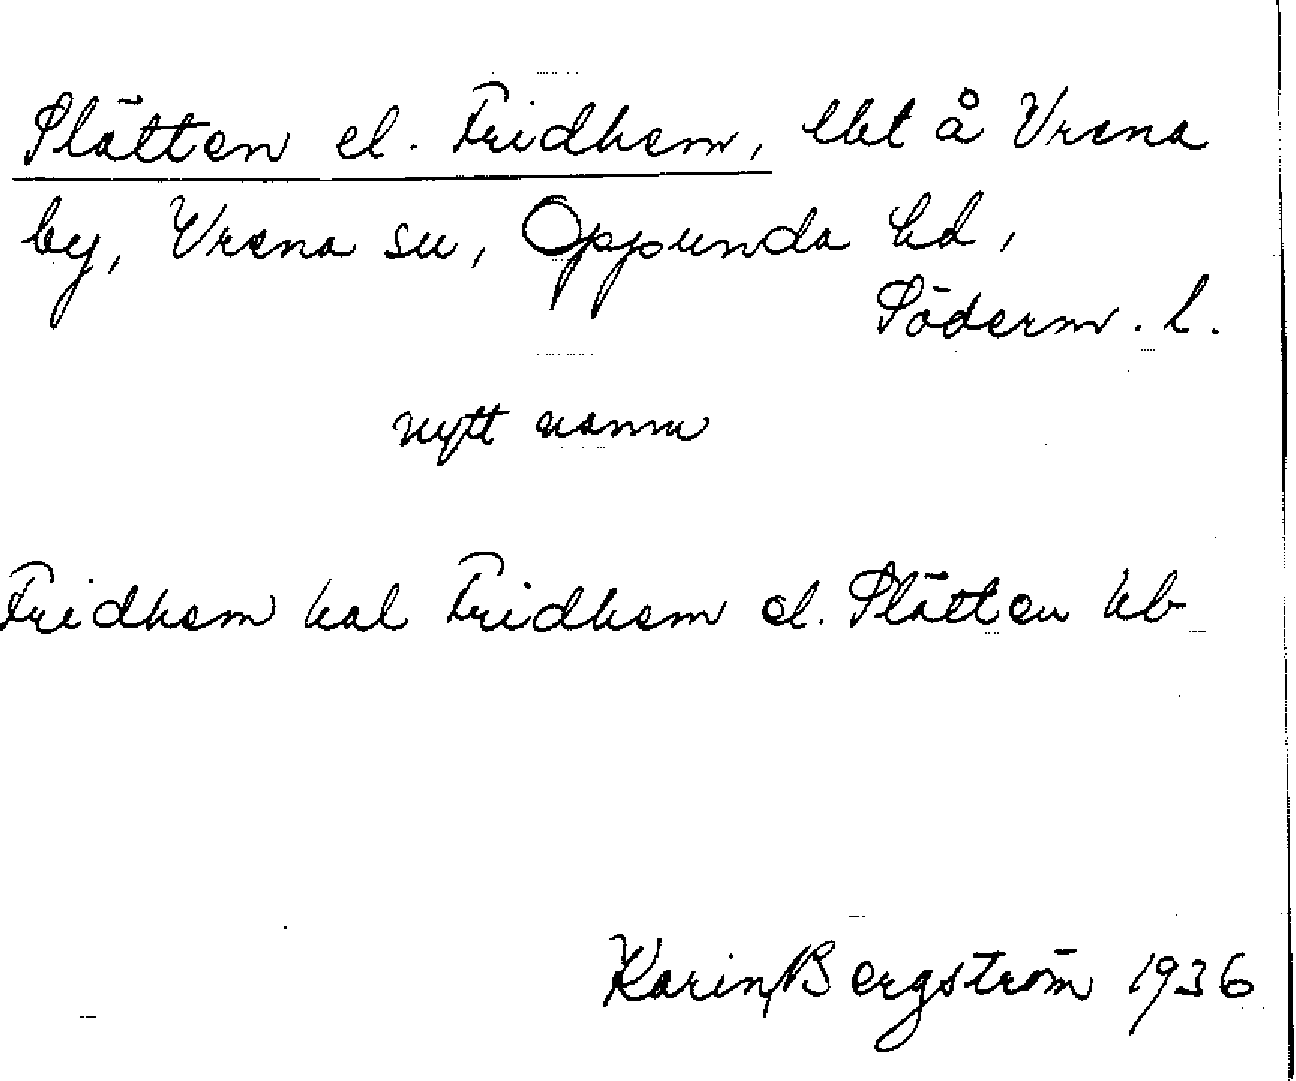 Slätten el. Fridhem, lht å Vrena
by, Vrena sn, Oppunda hd,
Söderm. l.
nytt namn
Fridhem hal Fridhem el. Slätten kb
Karin Bergström 1936